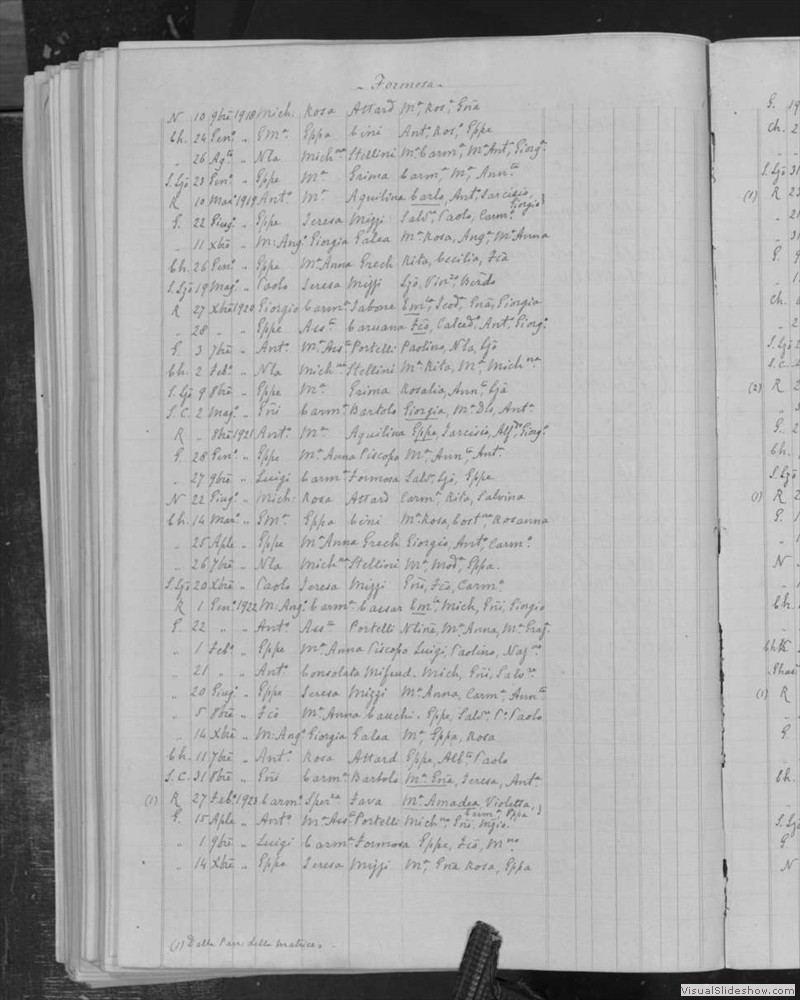 - Formosa -
N 10 9bre 1918 Mich: Rosa Attard Mª, Rosª, Gña
Ch. 24 Genº „ Emª Gppa Cini Antª, Rosª, Gppe
„ 26 Agto „ Nla Michna Stellini Mª Carmª, Mª Antª, Giorgª
S.Gjo 23 Genº „ Gppe Mª Grima Carmª, Mª, Annta
R 10 Marº 1919 Antº Mª Aquilina Carlo, Antª, Tarcisio, Giorgio}
G. 22 Giugº „ Gppe Teresa Mizzi Salvª, Paolo, Carmª
„ 11 Xbre „ M: Angº Giorgia Galea Mª Rosa, Angª, Mª Anna
Ch. 26 Genº „ Gppe Mª Anna Grech Rita, Cecilia, Fco
S.Gjo 19 Magº „ Paolo Teresa Mizzi Gjo, Vinza, Berdo
R 27 Xbre 1920 Giorgio Carmª Tabone Emla, Teodª, Gna, Giorgia
„ 28 „ „ Gppe Assta Caruana Fco, Calcedª, Antª, Giorgª
G. 3 7bre „ Antº Mª Assta Portelli Paolina, Nla, Gjo
Ch. 2 Febº „ Nla Michna Stellini Mª Rita, Mª Michna
S.Gjo 9 8bre „ Gppe Mª Grima Rosalia, Annta, Gjo
S.C. 2 Magº „ Gñi Carmª Bartolo Giorgia, Mª Dls, Antª
R „ 8bre 1921 Antº Mª Aquilina Gppa, Tarcisia, Alfda, Giorgª
G. 28 Genº „ Gppe Mª Anna Piscopo Mª Annta, Antª
„ 27 9bre „ Luigi Carmª Formosa Salvª, Gjo, Gppe
N 22 Giugº „ Mich: Rosa Attard Carmª, Rita, Salvina
Ch. 14 Marº „ Emª Gppa Cini Mª Rosa, Costna, Rosanna
„ 25 Aple „ Gppe Mª Anna Grech Giorgio, Antº, Carmº
„ 26 7bre „ Nla Michna Stellini Mª Modª, Gppa.
S.Gjo 20 Xbre „ Paolo Teresa Mizzi Gñi, Fco, Carmº
R 1 Genº 1922 M: Angº Carmª Cassar Emla, Mich, Gñi, Giorgio
G. 22 „ „ Antº Assta Portelli Mª Anna,
„ 1 Febº „ Gppe Mª Anna Piscopo Luigi, Paolino,
„ 21 „ „ Antº Consolata Mifsud. Mich, Gñi, Salvre
„ 20 Giugº „ Gppe Teresa Mizzi Mª Anna, Carmª, Annta
„ 5 8bre „ Fco Mª Anna Cauchi. Gppe, Salvre, Pº Paolo
„ 14 Xbre „ M: Angº Giorgia Galea Mª, Gppa, Rosa
Ch. 11 7bre „ Antº Rosa Attard Gppe, Albto, Paolo
S.C. 31 8bre „ Gñi Carmª Bartolo Mª Gña, Teresa, Antª
(1) R 27 Febº 1923 Carmº Sperza Fava Mª Amadea, Violetta, Carmª, Gppa}
G. 15 Aple „ Antº Mª Assta Portelli Michna, Gñi,
„ 1 9bre „ Luigi Carmª Formosa Gppe, Fco,
„ 14 Xbre „ Gppe Teresa Mizzi Mª, Gña Rosa, Gppa
(1) Dalla Parr. della Matrice.
G. 19
Ch. 2
S.Gjo 31
(1) R 23
„ 21
„ 31
G. 9
„ 1
Ch.
„ 2
S.Gjo 2
S.C.
(2) R 2
G. 2
Ch.
S.Gjo
(1) R 2
G.
N
Ch.
(1) R
G
Ch.
S.Gjo
G
N
VisualSlideshow.com